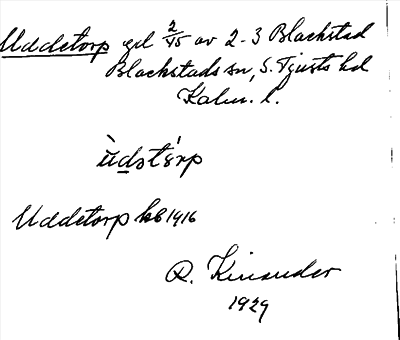 Uddetorp gd 2/45 av 2-3 Blackstad
Blackstads sn, S. Tjusts hd
Kalm. l.
ùdstórp
Uddetorp kb 1916
R. Kinander
1929